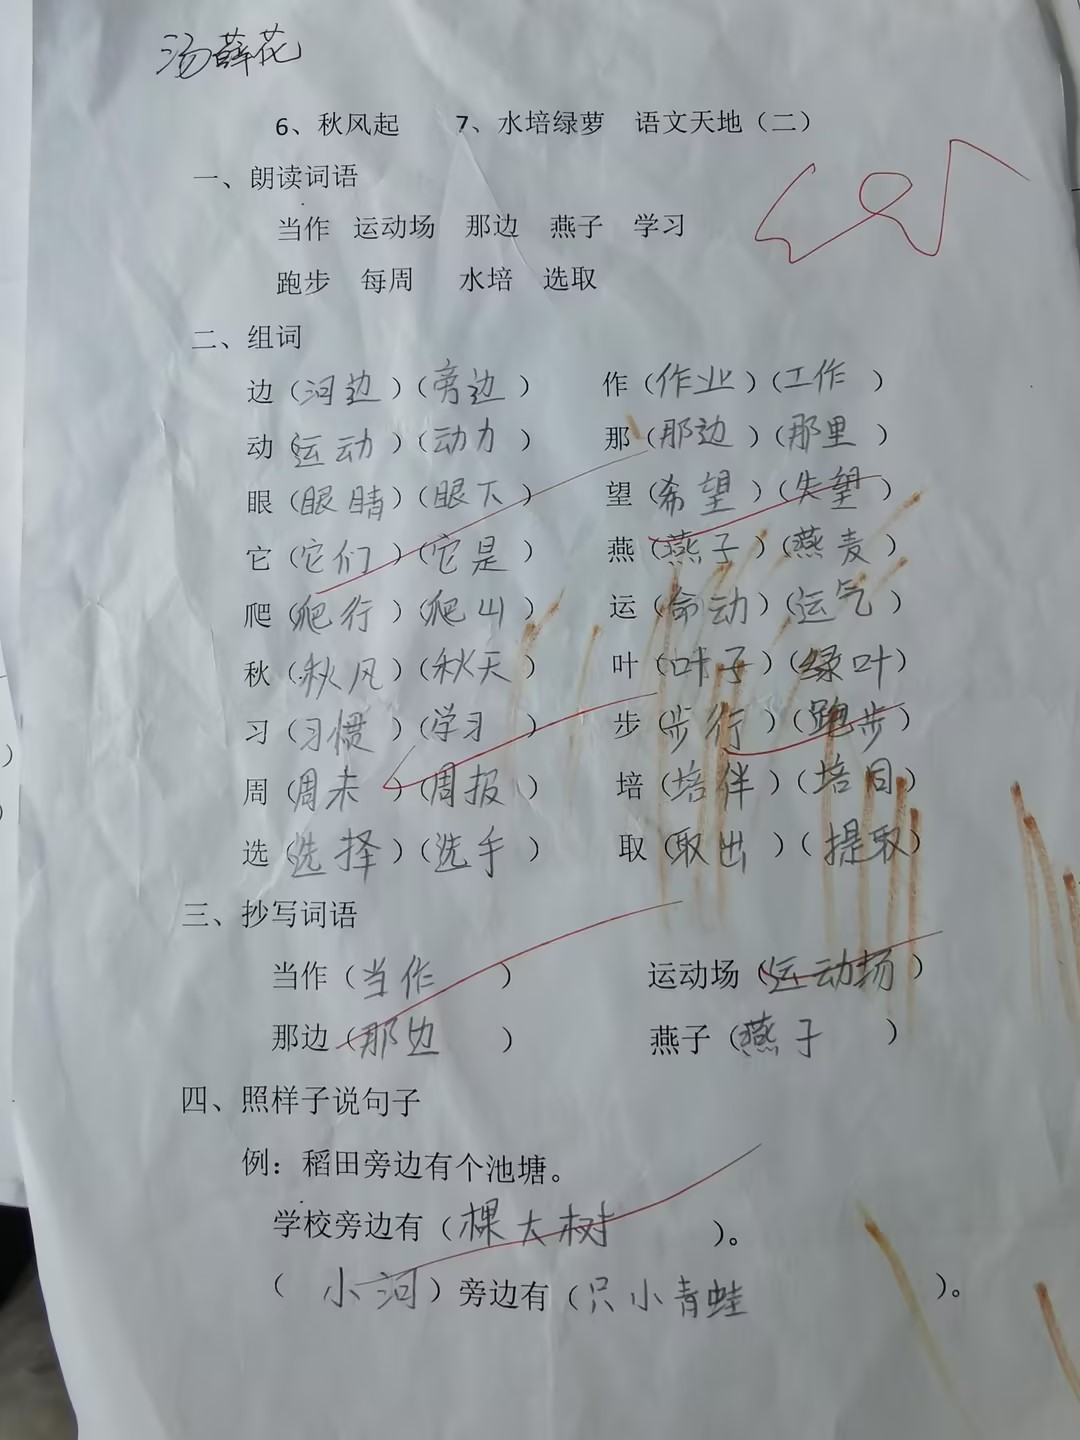 汤薛花
6、秋风起 7、水培绿萝 语文天地（二）
一、朗读词语
当作 运动场 那边 燕子 学习
跑步 每周 水培 选取
二、组词
边（河边）（旁边） 作（作业）（工作）
动（运动）（动力） 那（那边）（那里）
眼（眼睛）（眼下） 望（希望）（失望）
它（它们）（它是） 燕（燕子）（燕麦）
爬（爬行）（爬山） 运（命动）（运气）
秋（秋风）（秋天） 叶（叶子）（绿叶）
习（习惯）（学习） 步（步行）（跑步）
周（周末）（周报） 培（培伴）（培目）
选（选择）（选手） 取（取出）（提取）
三、抄写词语
当作（当作） 运动场（运动场）
那边（那边） 燕子（燕子）
四、照样子说句子
例：稻田旁边有个池塘。
学校旁边有（棵大树）。
（小河）旁边有（只小青蛙）。